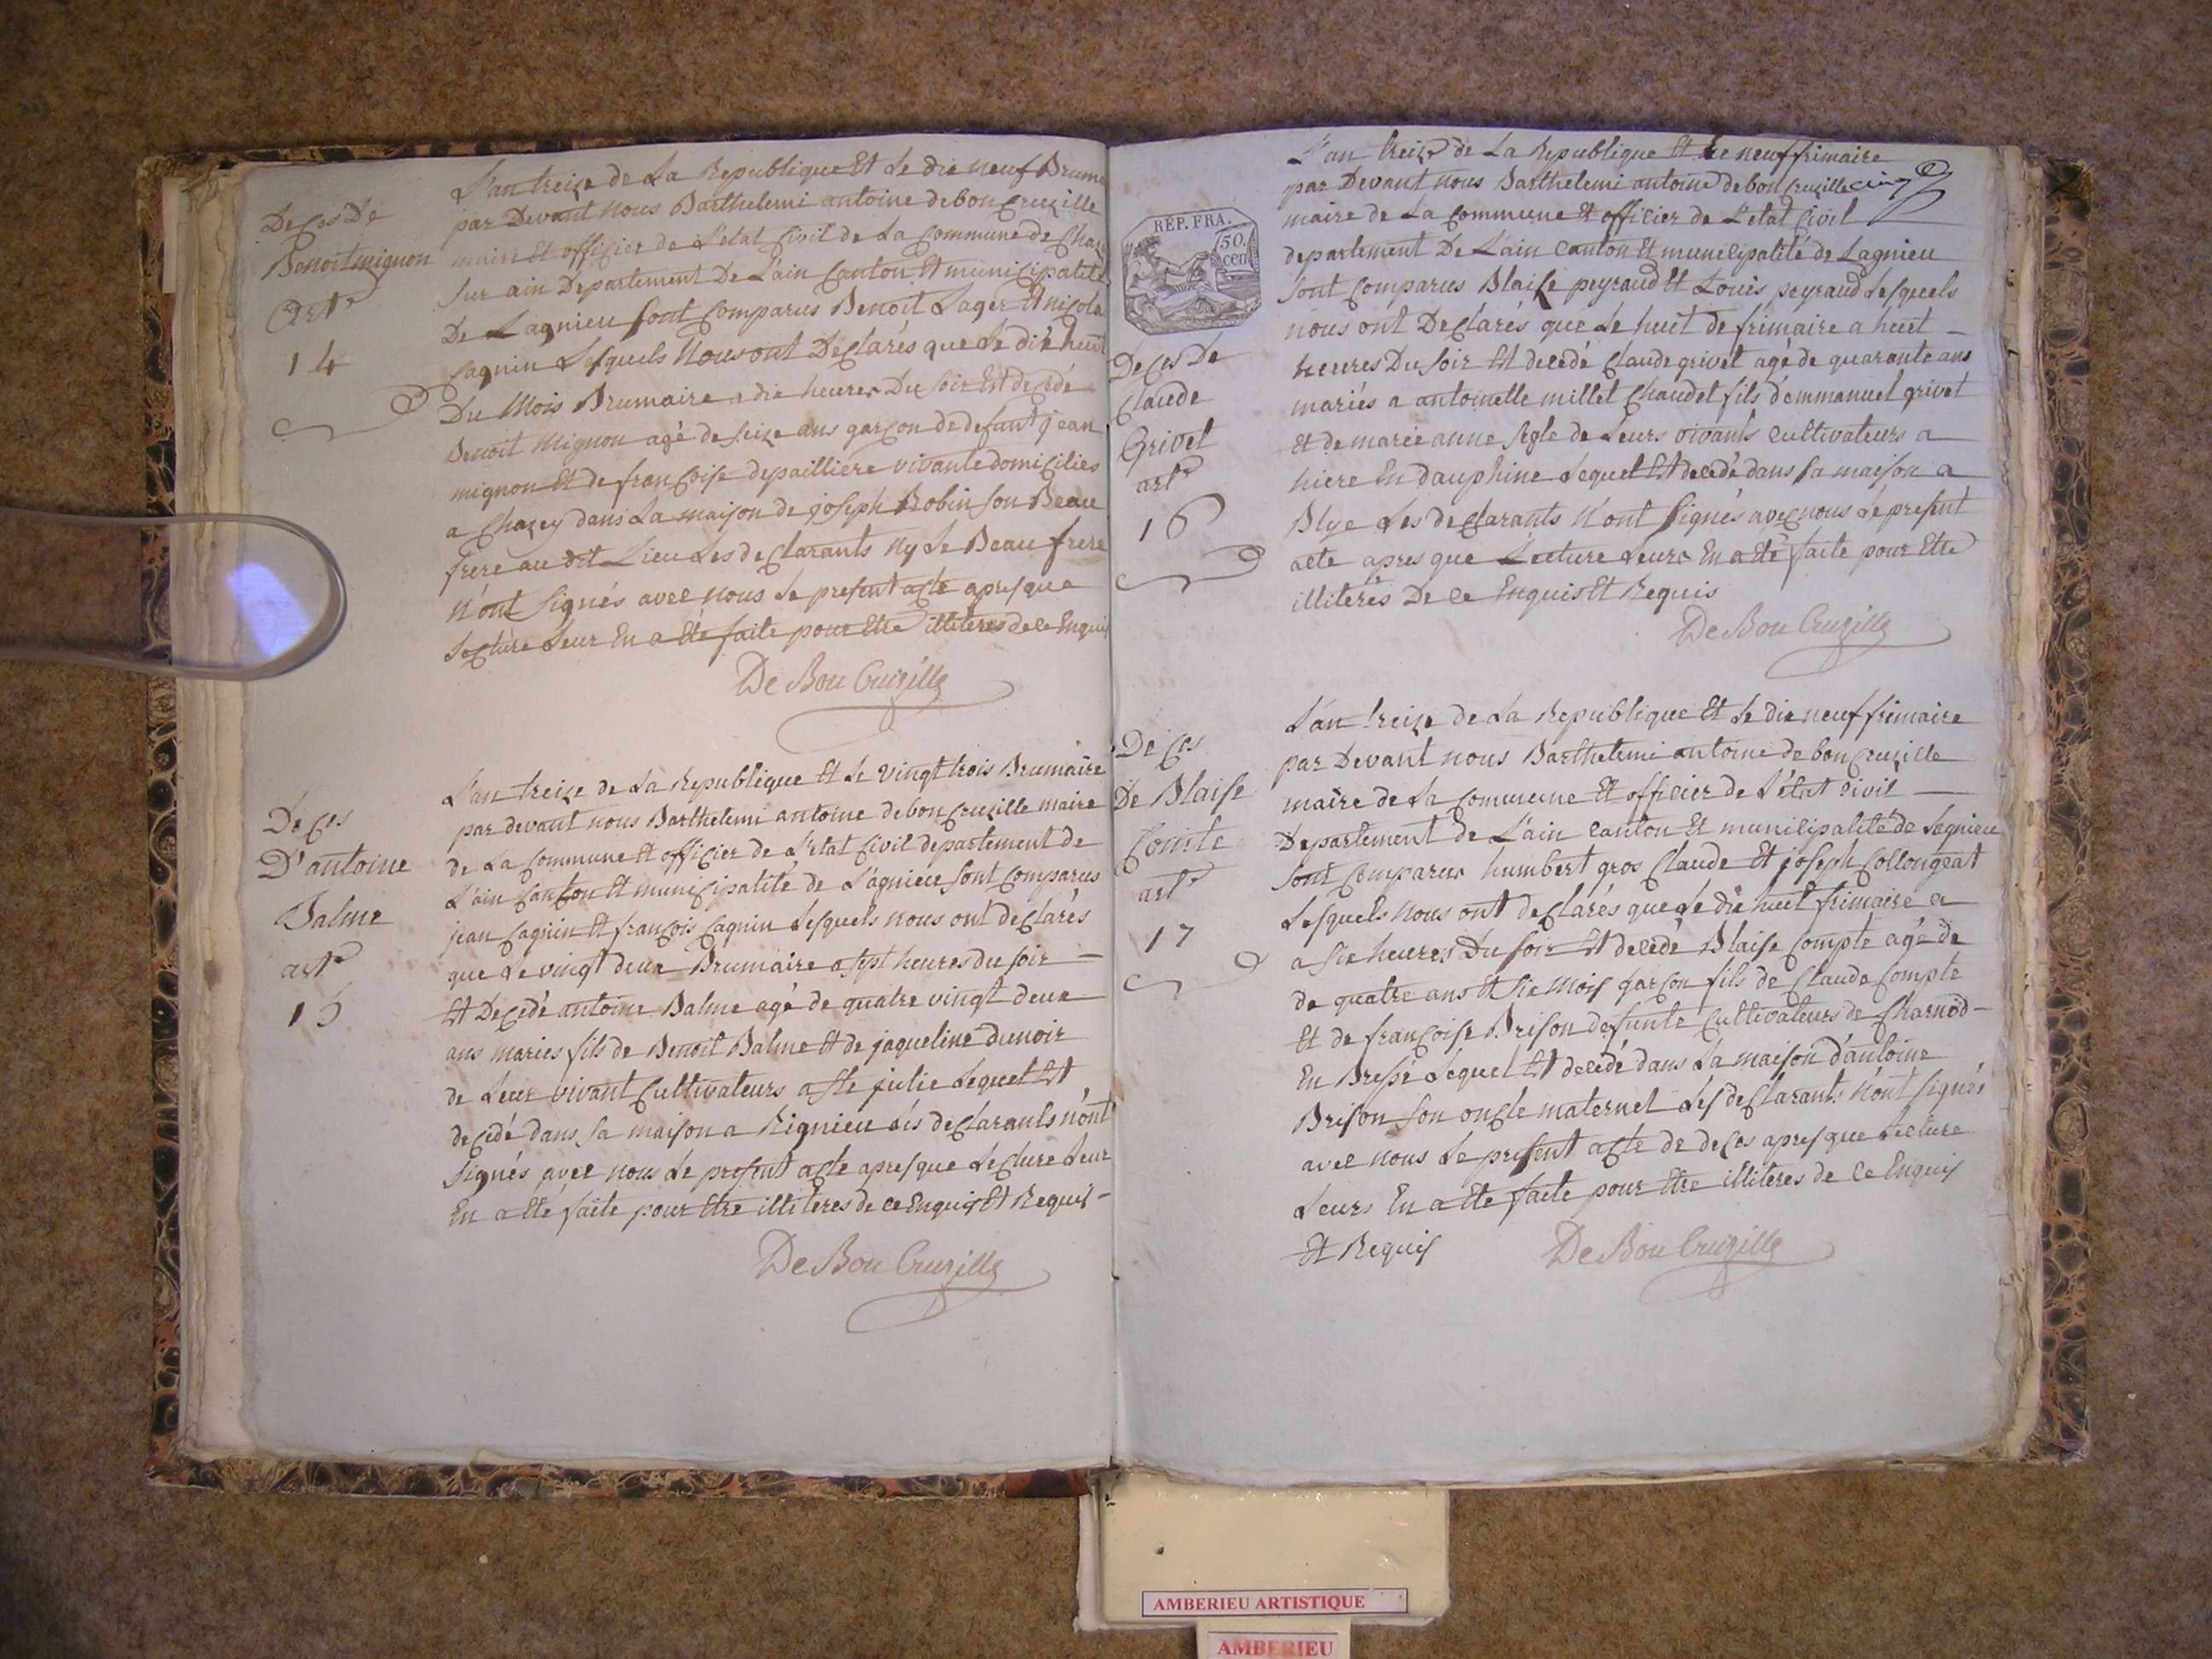 Deces De
Benoit mignon
Arte
14
L'an treize de La Republique Et Le dix neuf Brum
par Devant nous Barthelemi antoine debon Cruzille
maire Et officier de L'etat Civil de La Commune de Chaz
sur ain Departement De L'ain Canton Et municipalité
De Lagnieu sont Comparus Benoit Lager Et nicola
Cagnin Lesquels Nous ont Declarés que Le dix huit
Du Mois Brumaire a dix heures Du soir Est decedé
Benoit Mignon agé de seize ans garçon de defunt jean
mignon Et de françoise depailliere vivante domiciliés
a Chazey dans La maison de joseph Bobin son Beau
frere au dit Lieu Les declarants ny Le Beau frere
n'ont signés avec nous Le present acte apres que
Lecture Leur En a Eté faite pour Etre illiteres de ce Enquis
De Bon Cruzille
Deces
D'antoine
Balme
arte
15
L'an treize de La Republique Et Le vingt trois Brumaire
par devant nous Barthelemi antoine debon Cruzille maire
de La Commune Et officier de L'etat Civil departement de
L'ain Canton Et municipalité de L'agnieu sont Comparus
jean Cagnin Et françois Cagnin Lesquels nous ont declarés
que Le vingt deux Brumaire a sept heures du soir
Est Decedé antoine Balme agé de quatre vingt deux
ans mariés fils de Benoit Balme Et de jaqueline dunoir
de Leur vivant Cultivateurs a Ste julie Lequel Est
decedé dans sa maison a Rignieu Les declarants n'ont
signés avec nous Le present acte apres que Lecture Leur
En a Eté faite pour Etre illiteres de ce Enquis Et Requis
De Bon Cruzille
REP. FRA.
50.
cen
L'an treize de La Republique Et Le neuf frimaire
par Devant nous Barthelemi antoine debon Cruzille cinq
maire de La Commune Et officier de L'etat Civil
departement De L'ain Canton Et municipalité de Lagnieu
sont Comparus Blaise peyraud Et Louis peyraud Lesquels
nous ont Declarés que Le huit de frimaire a huit
heures Du soir Est decedé Claude grivet agé de quarante ans
mariés a antoinette millet Chaudet fils d'emmanuel grivet
Et de marie anne Segle de Leurs vivants cultivateurs a
hiere En dauphine Lequel Est decedé dans sa maison a
Blye Les declarants N'ont signés avec nous Le present
acte apres que Lecture Leurs En a Eté faite pour Etre
illiterés De ce Enquis Et Requis
De Bon Cruzille
Deces De
Claude
Grivet
arte
16
Deces
De Blaise
Comte
arte
17
L'an treize de La Republique Et Le dix neuf frimaire
par Devant nous Barthelemi antoine de bon Cruzille
maire de La Commune Et officier de L'état Civil
Departement de L'ain canton Et municipalité de Lagnieu
sont Comparus humbert gros Claude Et joseph Collongeat
Lesquels nous ont declarés que Le dix huit frimaire a
a six heures Du soir Est decedé Blaise Compte agé de
de quatre ans Et six mois garçon fils de Claude Compte
Et de françoise Brison defunte Cultivateurs de Charnod
En Bresse Lequel Est decedé dans La maison d'antoine
Brison son oncle maternel Les declarants n'ont signés
avec nous Le present acte de deces apres que Lecture
Leurs En a Eté faite pour Etre illiteres de ce Enquis
Et Requis
De Bon Cruzille
AMBERIEU ARTISTIQUE
AMBERIEU